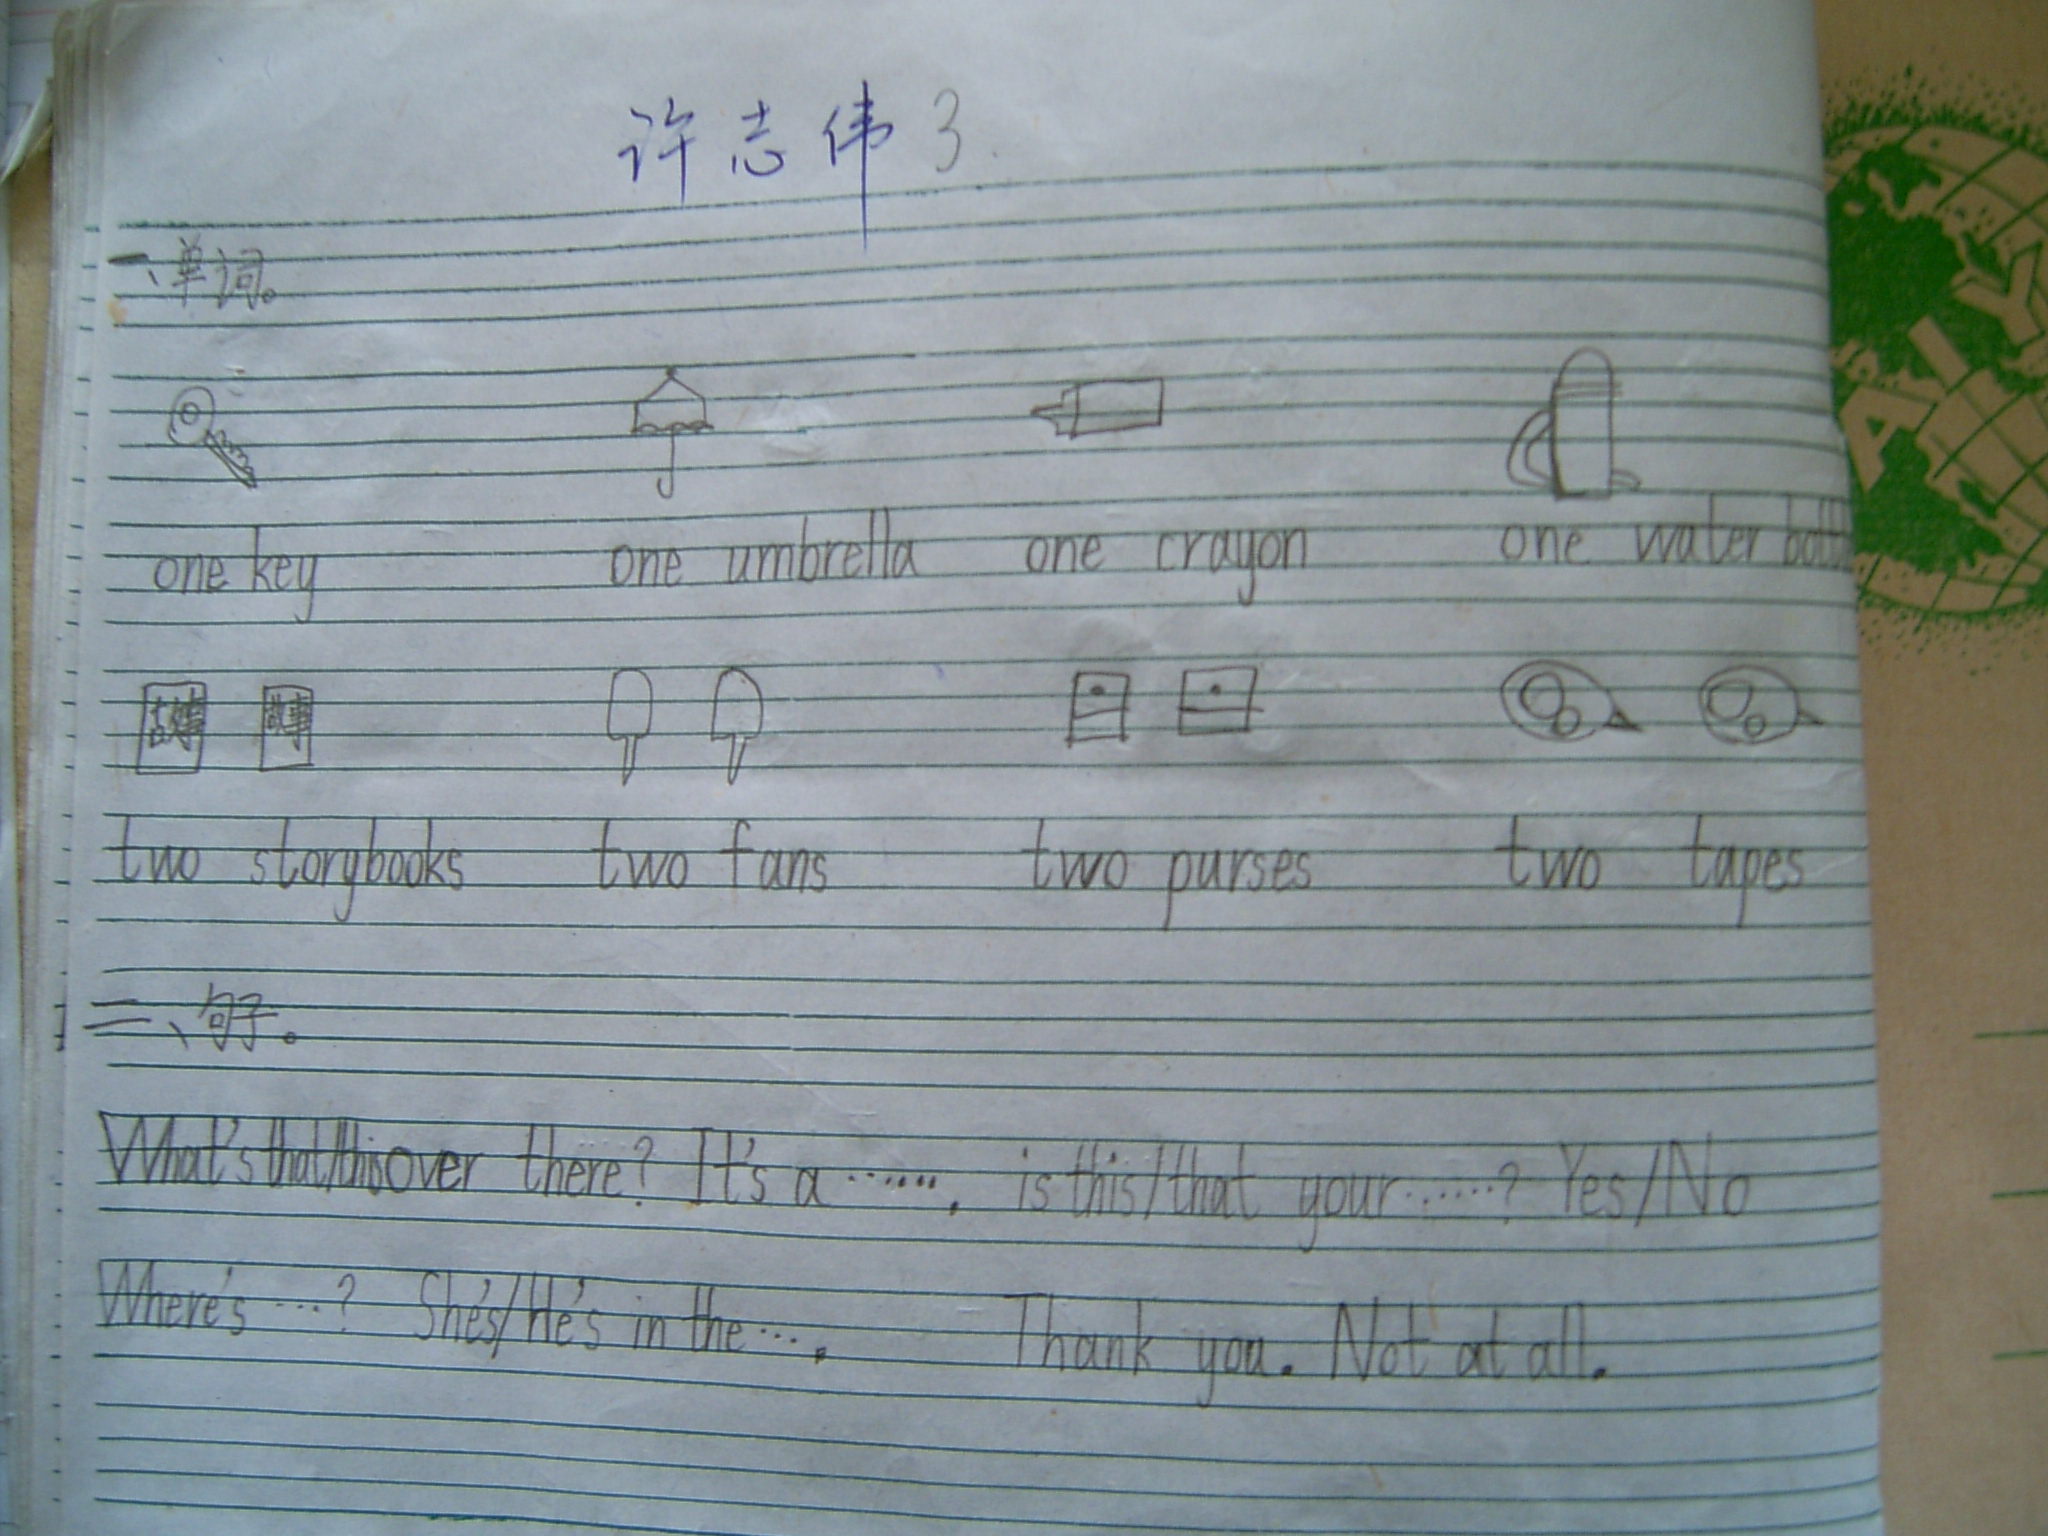 许志伟 3
一、单词。
one key one umbrella one crayon one water bottl
故事 故事
two storybooks two fans two purses two tapes
二、句子。
What's that/this over there? It's a ……. is this/that your ……? Yes/No
Where's …? She's/He's in the …. Thank you. Not at all.